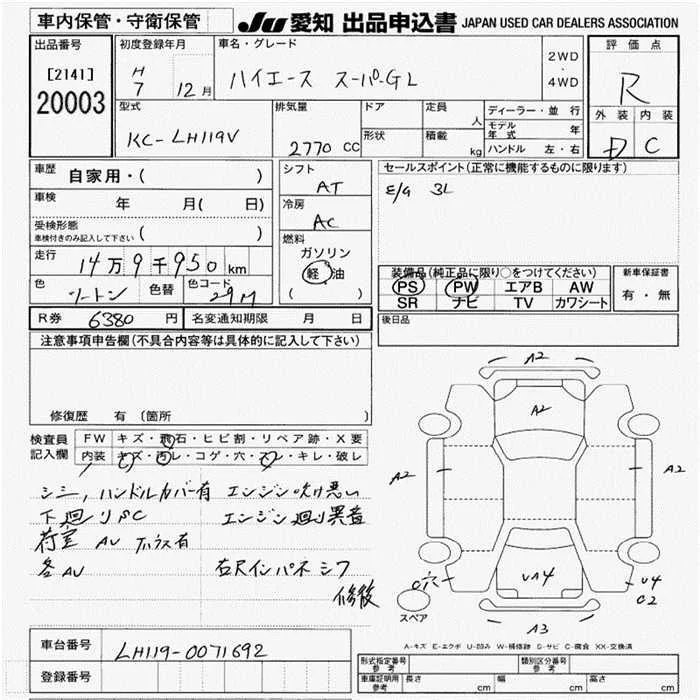 車内保管・守衛保管
JU 愛知 出品申込書 JAPAN USED CAR DEALERS ASSOCIATION
出品番号
[2141]
20003
初度登録年月
H
7 12 月
車名・グレード
ハイエース スーパーGL
2WD
・
4WD
評価点
R
外装 内装
D C
型式
KC-LH119V
排気量
2770 CC
ドア
形状
定員
人
積載
kg
ディーラー・並行
モデル年式 年
ハンドル 左・右
車歴
自家用・( )
車検
年 月( 日)
受検形態
車検付きのみ記入して下さい ( )
走行
14万9千950 km
色
ツートン
色替
色コード
29M
シフト
AT
冷房
AC
燃料
ガソリン
軽油
( )
セールスポイント(正常に機能するものに限ります)
E/G 3L
装備品(純正品に限り○をつけてください)
PS PW エアB AW
SR ナビ TV カワシート
新車保証書
有・無
R券 6380 円
名変通知期限 月 日
後日品
注意事項申告欄(不具合内容等は具体的に記入して下さい)
修復歴 有 〔箇所 〕
検査員
記入欄
FW キズ・飛石・ヒビ割・リペア跡・X要
内装 キズ・汚レ・コゲ・穴・スレ・キレ・破レ
シミ,ハンドルカバー有 エンジン吹け悪い
下廻りSC エンジン廻り異音
荷室 AU 有
各AU 右Rインパネ シワ
修後
A2
A2
A2
A2
U14
C穴
U4
C2
A3
スペア
A-キズ E-エクボ U-凹み W-補修跡 S-サビ C-腐食 XX-交換済
車台番号
LH119-0071692
登録番号
形式指定番号
参考
類別区分番号
参考
車庫証明用
参考
長さ cm 幅 cm 高さ cm